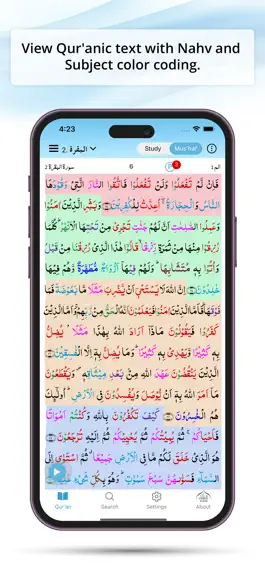 View Qur'anic text with Nahv and
Subject color coding.
4:23
2. البقرة
Study
Mus'haf
سورة البقرة ٢
6
3
الم ١
فَاِنْ لَّمْ تَفْعَلُوْا وَلَنْ تَفْعَلُوْا فَاتَّقُوا النَّارَ الَّتِیْ وَقُوْدُهَا
النَّاسُ وَالْحِجَارَةُ ۚ اُعِدَّتْ لِلْكٰفِرِیْنَ ۝ وَبَشِّرِ الَّذِیْنَ اٰمَنُوْا
وَعَمِلُوا الصّٰلِحٰتِ اَنَّ لَهُمْ جَنّٰتٍ تَجْرِیْ مِنْ تَحْتِهَا الْاَنْهٰرُ ؕ كُلَّمَا
رُزِقُوْا مِنْهَا مِنْ ثَمَرَةٍ رِّزْقًا ۙ قَالُوْا هٰذَا الَّذِیْ رُزِقْنَا مِنْ قَبْلُ ۙ
وَاُتُوْا بِهٖ مُتَشَابِهًا ؕ وَلَهُمْ فِیْهَاۤ اَزْوَاجٌ مُّطَهَّرَةٌ ۙ وَّهُمْ فِیْهَا
خٰلِدُوْنَ ۝ اِنَّ اللّٰهَ لَا یَسْتَحْیٖۤ اَنْ یَّضْرِبَ مَثَلًا مَّا بَعُوْضَةً فَمَا
فَوْقَهَا ؕ فَاَمَّا الَّذِیْنَ اٰمَنُوْا فَیَعْلَمُوْنَ اَنَّهُ الْحَقُّ مِنْ رَّبِّهِمْ ۚ وَاَمَّا الَّذِیْنَ
كَفَرُوْا فَیَقُوْلُوْنَ مَاذَاۤ اَرَادَ اللّٰهُ بِهٰذَا مَثَلًا ۘ یُضِلُّ بِهٖ
كَثِیْرًا ۙ وَّیَهْدِیْ بِهٖ كَثِیْرًا ؕ وَمَا یُضِلُّ بِهٖۤ اِلَّا الْفٰسِقِیْنَ ۝
الَّذِیْنَ یَنْقُضُوْنَ عَهْدَ اللّٰهِ مِنْۢ بَعْدِ مِیْثَاقِهٖ ۪ وَیَقْطَعُوْنَ
مَاۤ اَمَرَ اللّٰهُ بِهٖۤ اَنْ یُّوْصَلَ وَیُفْسِدُوْنَ فِی الْاَرْضِ ؕ اُولٰٓئِكَ
هُمُ الْخٰسِرُوْنَ ۝ كَیْفَ تَكْفُرُوْنَ بِاللّٰهِ وَكُنْتُمْ اَمْوَاتًا
فَاَحْیَاكُمْ ۚ ثُمَّ یُمِیْتُكُمْ ثُمَّ یُحْیِیْكُمْ ثُمَّ اِلَیْهِ تُرْجَعُوْنَ ۝
هُوَ الَّذِیْ خَلَقَ لَكُمْ مَّا فِی الْاَرْضِ جَمِیْعًا ۗ ثُمَّ اسْتَوٰۤی اِلَی
السَّمَآءِ فَسَوّٰىهُنَّ سَبْعَ سَمٰوٰتٍ ؕ وَهُوَ بِكُلِّ شَیْءٍ عَلِیْمٌ ۝
Qur'an
Search
Settings
About